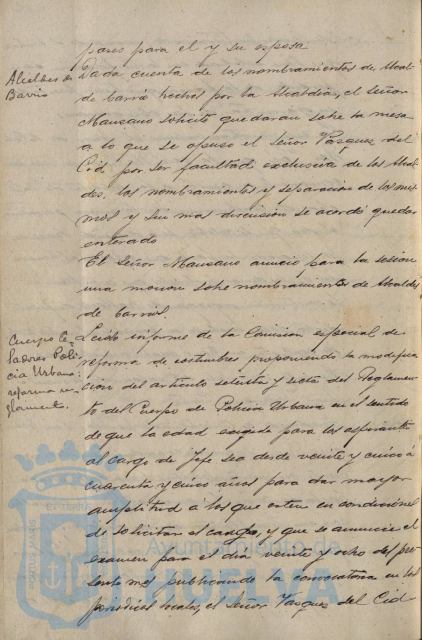 pases para el y su esposa
Alcaldes de
Barrio
Dada cuenta de los nombramientos de Alcal-
de barrio hechos por la Alcaldia, el señor
Manzano solicitó quedaran sobre la mesa
a lo que se opuso el Señor Vázquez del
Cid por ser facultad exclusiva de los Alcal-
des. los nombramientos y separacion de los mis-
mos y sin mas discusion se acordó quedar
enterado
El Señor Manzano anunció para la sesion
una mocion sobre nombramientos de Alcaldes
de barrio.
Cuerpo Ce-
ladores Poli-
cia Urbana:
reforma re-
glament.
Leido informe de la Comision especial de
reforma de costumbres proponiendo la modifica
cion del artículo setenta y siete del Reglamen-
to del Cuerpo de Policia Urbana en el sentido
de que la edad exigida para los aspirantes
al cargo de Jefe sea desde veinte y cinco á
cuarenta y cinco años para dar mayor
amplitud á los que esten en condiciones
de solicitar el cargo, y que se anuncie el
examen para el dia veinte y ocho del pre-
sente mes publicando la convocatoria en los
periódicos locales, el Señor Vázquez del Cid
PORTUS MARIS
ET TERRAE
Ayuntamiento de
HUELVA